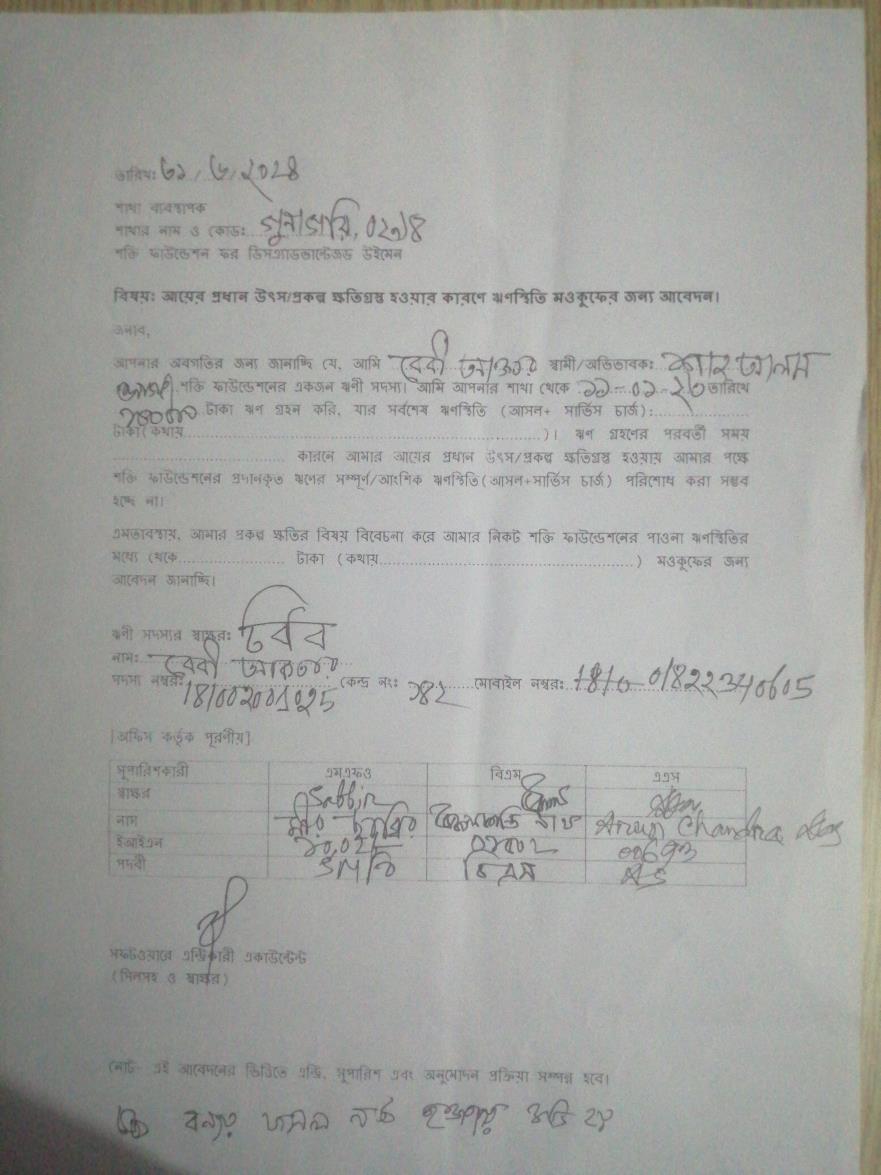 তারিখ: ৩১/৬/২০২৪
শাখা ব্যবস্থাপক
শাখার নাম ও কোড:
শক্তি ফাউন্ডেশন ফর ডিসএ্যাডভান্টেজড উইমেন
বিষয়: আয়ের প্রধান উৎস/প্রকল্প ক্ষতিগ্রস্থ হওয়ার কারণে ঋণস্থিতি মওকুফের জন্য আবেদন।
জনাব,
আপনার অবগতির জন্য জানাচ্ছি যে, আমি বেবী আক্তার স্বামী/অভিভাবক: আলম
শক্তি ফাউন্ডেশনের একজন ঋনী সদস্য। আমি আপনার শাখা থেকে তারিখে
টাকা ঋণ গ্রহন করি, যার সর্বশেষ ঋণস্থিতি (আসল+ সার্ভিস চার্জ):....................
টাকা(কথায়....................)। ঋণ গ্রহণের পরবর্তী সময়
.................... কারনে আমার আয়ের প্রধান উৎস/প্রকল্প ক্ষতিগ্রস্থ হওয়ায় আমার পক্ষে
শক্তি ফাউন্ডেশনের প্রদানকৃত ঋনের সম্পূর্ণ/আংশিক ঋণস্থিতি(আসল+সার্ভিস চার্জ) পরিশোধ করা সম্ভব
হচ্ছে না।
এমতাবস্থায়, আমার প্রকল্প ক্ষতির বিষয় বিবেচনা করে আমার নিকট শক্তি ফাউন্ডেশনের পাওনা ঋণস্থিতির
মধ্যে থেকে.................... টাকা (কথায়....................) মওকুফের জন্য
আবেদন জানাচ্ছি।
ঋনী সদস্যর স্বাক্ষর:
নাম: বেবী আকতার
সদস্য নম্বর: কেন্দ্র নং: মোবাইল নম্বর: 01822340605
[অফিস কর্তৃক পূরণীয়]
সুপারিশকারী এমএফও বিএম এএস
স্বাক্ষর Sabbir
নাম মীর Arun Chandra
ইআইএন
পদবী বিএম AS
সফটওয়ারে এন্ট্রিকারী একাউন্টেন্ট
(সিলসহ ও স্বাক্ষর)
নোট- এই আবেদনের ভিত্তিতে এন্ট্রি, সুপারিশ এবং অনুমোদন প্রক্রিয়া সম্পন্ন হবে।
বন্যায় ফসল নষ্ট হওয়ায় ক্ষতি হয়